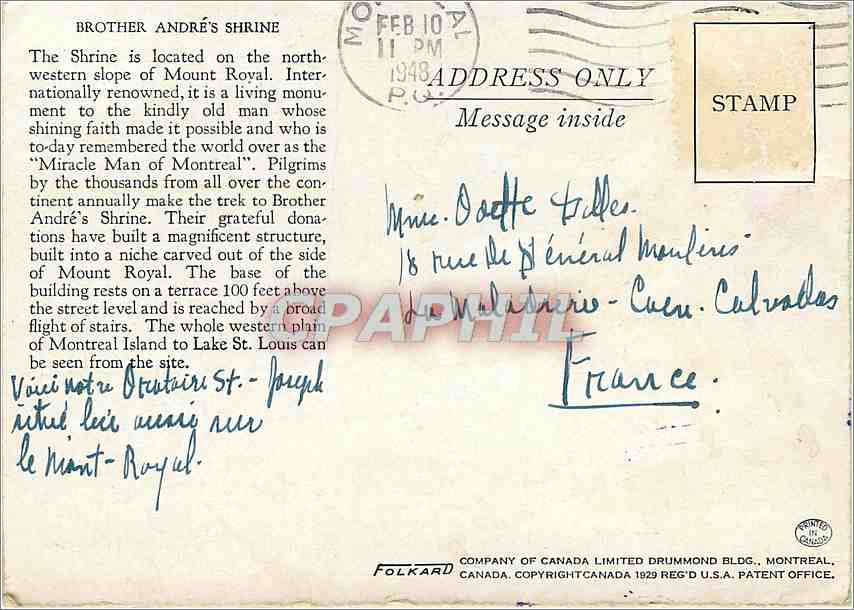 BROTHER ANDRÉ'S SHRINE
The Shrine is located on the north-
western slope of Mount Royal. Inter-
nationally renowned, it is a living monu-
ment to the kindly old man whose
shining faith made it possible and who is
to-day remembered the world over as the
"Miracle Man of Montreal". Pilgrims
by the thousands from all over the con-
tinent annually make the trek to Brother
André's Shrine. Their grateful dona-
tions have built a magnificent structure,
built into a niche carved out of the side
of Mount Royal. The base of the
building rests on a terrace 100 feet above
the street level and is reached by a broad
flight of stairs. The whole western plain
of Montreal Island to Lake St. Louis can
be seen from the site.
Voici notre Oratoire St.-Joseph
situé lui aussi sur
le Mont-Royal.
FEB 10
11 PM
1948
P.Q.
ADDRESS ONLY
Message inside
STAMP
Mme. Odette
18 rue du Général Moulins
La Maladrerie - Caen. Calvados
France.
CPAPHIL
PRINTED
IN
CANADA
FOLKARD COMPANY OF CANADA LIMITED DRUMMOND BLDG., MONTREAL,
CANADA. COPYRIGHT CANADA 1929 REG'D U.S.A. PATENT OFFICE.